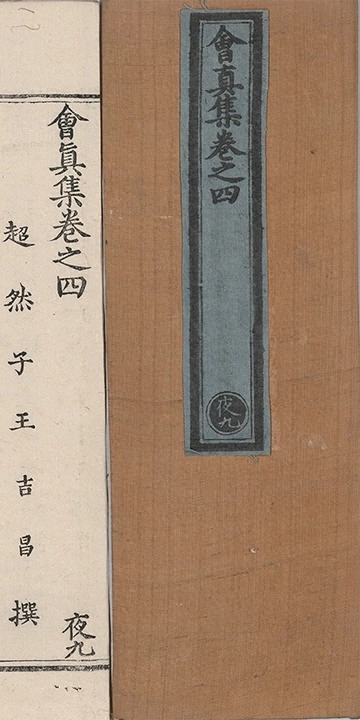 會真集卷之四
夜九
會眞集卷之四
夜九
超然子王吉昌撰